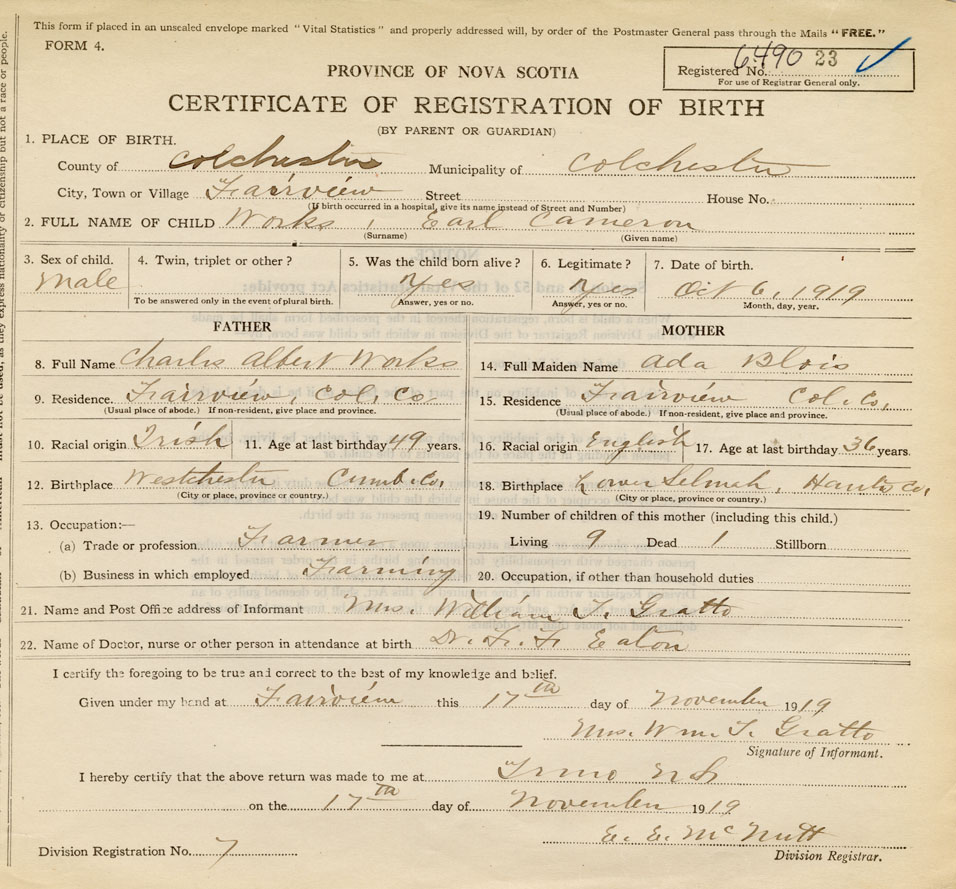 This form if placed in an unsealed envelope marked "Vital Statistics" and properly addressed will, by order of the Postmaster General pass through the Mails "FREE."
FORM 4.
6490 23
Registered No.
For use of Registrar General only.
PROVINCE OF NOVA SCOTIA
CERTIFICATE OF REGISTRATION OF BIRTH
(BY PARENT OR GUARDIAN)
1. PLACE OF BIRTH.
County of Colchester Municipality of Colchester
City, Town or Village Fairview Street House No.
(If birth occurred in a hospital, give its name instead of Street and Number)
2. FULL NAME OF CHILD Works, Earl Cameron
(Surname) (Given name)
3. Sex of child. 4. Twin, triplet or other? 5. Was the child born alive? 6. Legitimate? 7. Date of birth.
Male Yes Yes Oct 6, 1919
To be answered only in the event of plural birth. Answer, yes or no. Answer, yes or no. Month, day, year.
FATHER
8. Full Name Charles Albert Works
9. Residence. Fairview, Col. Co.
(Usual place of abode.) If non-resident, give place and province.
10. Racial origin Irish 11. Age at last birthday 49 years.
12. Birthplace Westchester Cumb. Co.
(City or place, province or country.)
13. Occupation:—
(a) Trade or profession Farmer
(b) Business in which employed Farming
MOTHER
14. Full Maiden Name Ada Blois
15. Residence Fairview Col. Co.
(Usual place of abode.) If non-resident, give place and province.
16. Racial origin English 17. Age at last birthday 36 years.
18. Birthplace Lower Selmah, Hants Co.
(City or place, province or country.)
19. Number of children of this mother (including this child.)
Living 9 Dead 1 Stillborn
20. Occupation, if other than household duties
21. Name and Post Office address of Informant Mrs. William T. Gratto
22. Name of Doctor, nurse or other person in attendance at birth Dr. F. F. Eaton
I certify the foregoing to be true and correct to the best of my knowledge and belief.
Given under my hand at Fairview this 17th day of November 1919
Mrs. Wm. T. Gratto
Signature of Informant.
I hereby certify that the above return was made to me at N.S.
on the 17th day of November 1919
E. E. McNutt
Division Registrar.
Division Registration No. 7